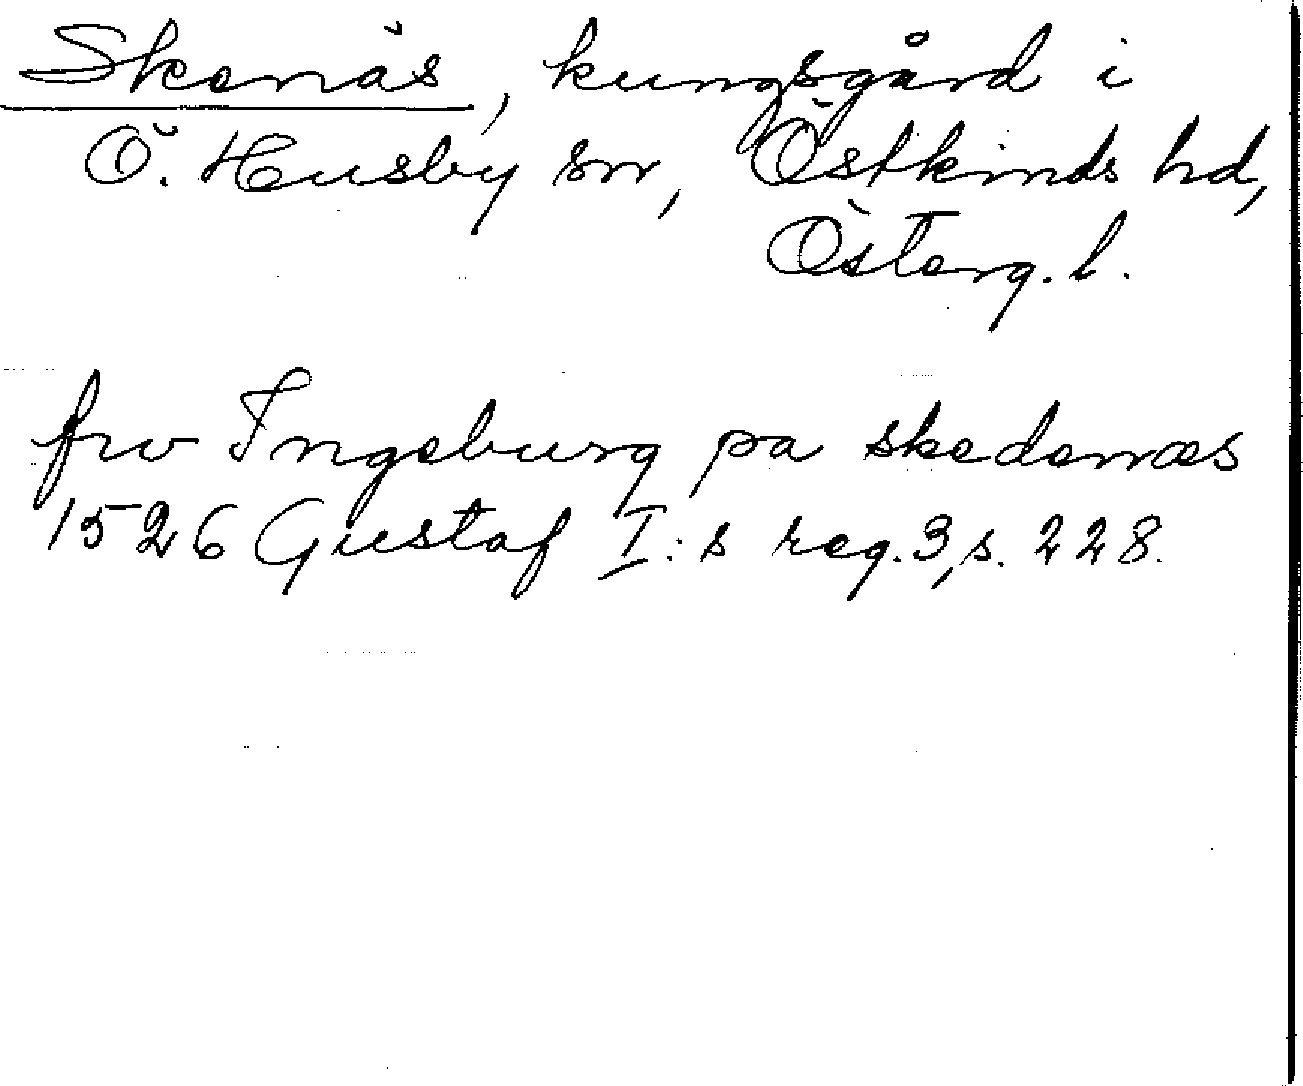 Skenäs, kungsgård i
Ö. Husby sn, Östkinds hd,
Österg. l.
frv Ingeburg pa skedenæs
1526 Gustaf I:s reg. 3, s. 228.